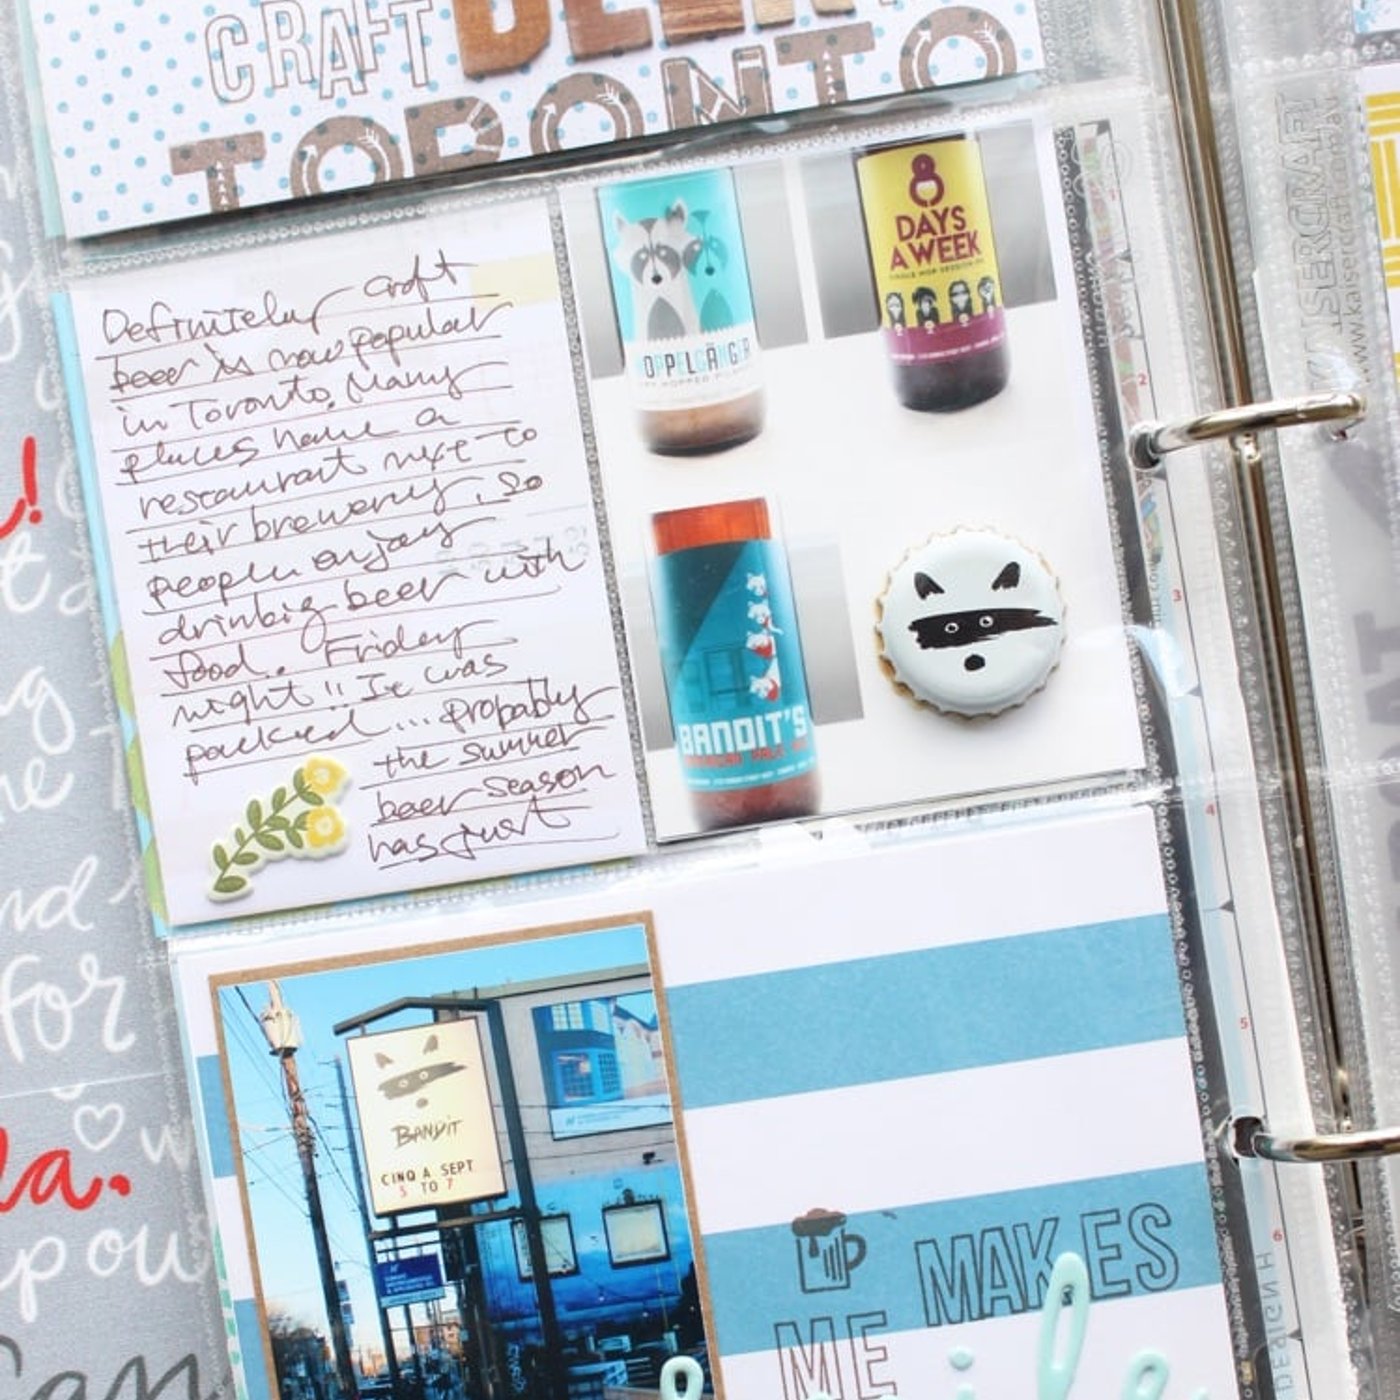 CRAFT BEER
TORONTO
Definitely craft
beer is now popular
in Toronto. Many
places have a
restaurant next to
their brewery, so
people enjoy
drinkig beer with
food. Friday
night!! It was
packed... Probably
the summer
beer season
has just
OPPELGÄNGER
8
DAYS
A WEEK
SINGLE HOP SESSION
BANDIT'S
PALE
BANDIT
CINQ A SEPT
5 TO 7
MAKES
ME
KAISERCRAFT
www.kaisercraft.com.au
!
for
la.
DESIGN H
1
2
3
4
5
6